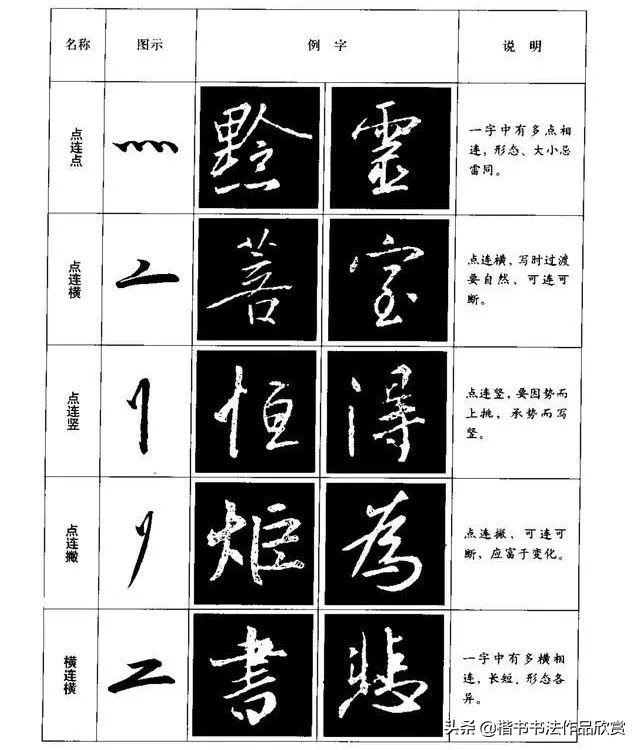 名称 图示 例字 说明
点连点
黔 靈
一字中有多点相
连，形态、大小忌
雷同。
点连横
菩 室
点连横，写时过渡
要自然，可连可
断。
点连竖
恒 得
点连竖，要因势而
上挑，承势而写
竖。
点连撇
炬 為
点连撇，可连可
断，应富于变化。
横连横
書 悲
一字中有多横相
连，长短、形态各
异。
头条 @楷书书法作品欣赏